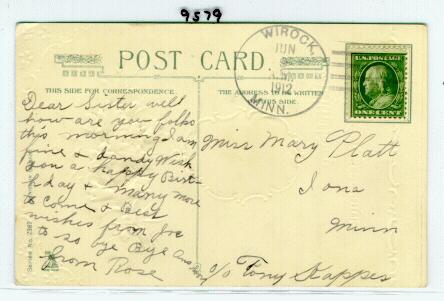 9579
POST CARD.
WIROCK,
JUN
A.M.
1912
MINN.
U.S. POSTAGE
ONE CENT
THIS SIDE FOR CORRESPONDENCE.
THE ADDRESS TO BE WRITTEN
ON THIS SIDE.
Dear Sister well
how are you folks
this morning I am
fine & dandy Wish
you a happy Birt-
hday & many more
to come & Best
wishes from Joe
to so bye Bye Ans
from Rose
Miss Mary Platt
Iona
Minn
c/o Tony Kappes
Series No.